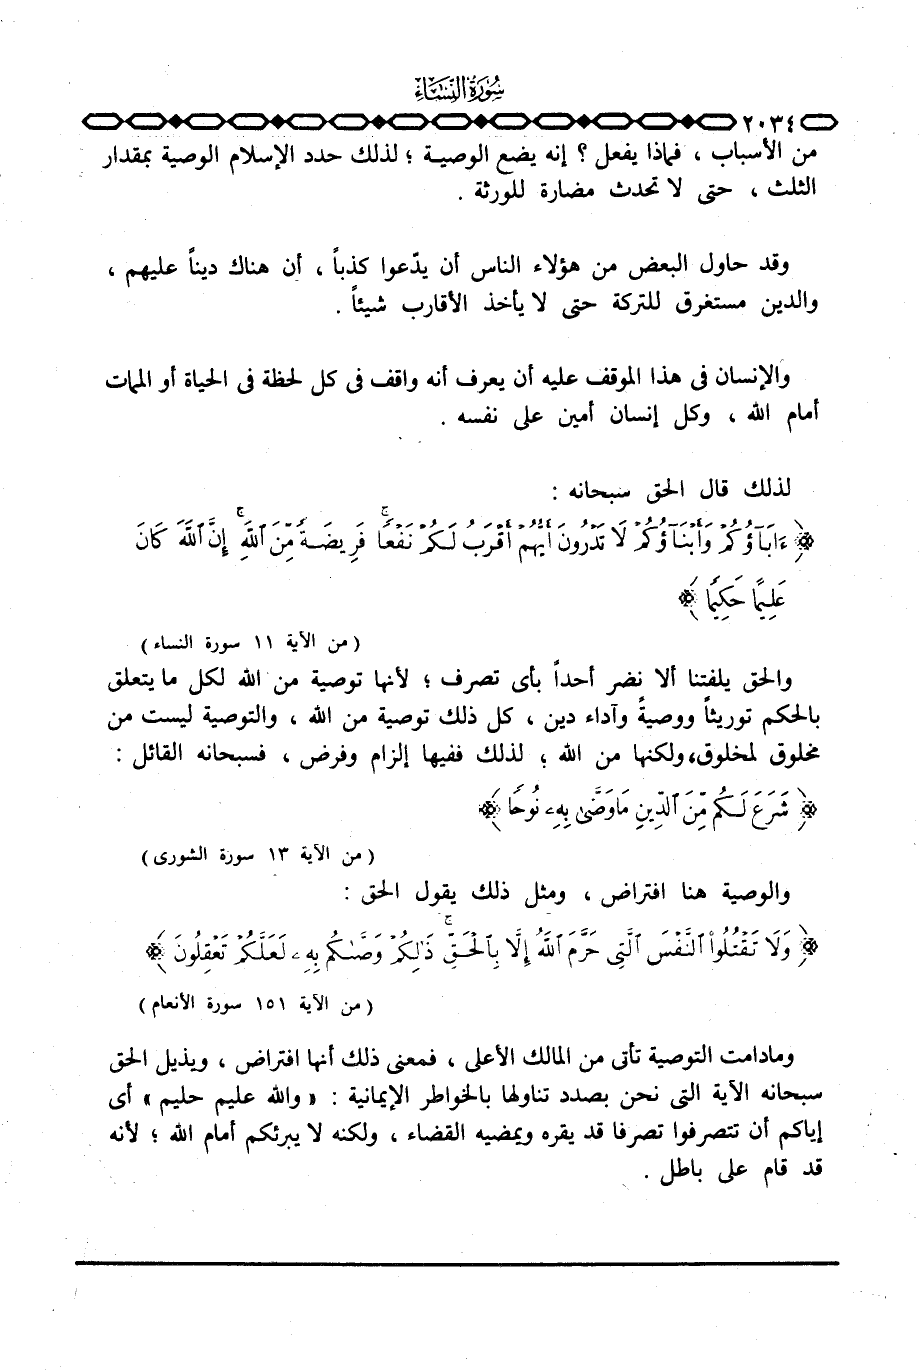 سُورَةُ النِّسَاءِ
٢٠٣٤
من الأسباب ، فماذا يفعل ؟ إنه يضع الوصية ؛ لذلك حدد الإسلام الوصية بمقدار
الثلث ، حتى لا تحدث مضارة للورثة .
وقد حاول البعض من هؤلاء الناس أن يدّعوا كذباً ، أن هناك ديناً عليهم ،
والدين مستغرق للتركة حتى لا يأخذ الأقارب شيئاً .
والإنسان فى هذا الموقف عليه أن يعرف أنه واقف فى كل لحظة فى الحياة أو الممات
أمام الله ، وكل إنسان أمين على نفسه .
لذلك قال الحق سبحانه :
﴿ ءَابَآؤُكُمْ وَأَبْنَآؤُكُمْ لَا تَدْرُونَ أَيُّهُمْ أَقْرَبُ لَكُمْ نَفْعًا ۚ فَرِيضَةً مِّنَ ٱللَّهِ ۗ إِنَّ ٱللَّهَ كَانَ
عَلِيمًا حَكِيمًا ﴾
( من الآية ١١ سورة النساء )
والحق يلفتنا ألا نضر أحداً بأى تصرف ؛ لأنها توصية من الله لكل ما يتعلق
بالحكم توريثاً ووصيةً وآداء دين ، كل ذلك توصية من الله ، والتوصية ليست من
مخلوق لمخلوق،ولكنها من الله ؛ لذلك ففيها إلزام وفرض ، فسبحانه القائل :
﴿ شَرَعَ لَكُم مِّنَ ٱلدِّينِ مَا وَصَّىٰ بِهِۦ نُوحًا ﴾
( من الآية ١٣ سورة الشورى )
والوصية هنا افتراض ، ومثل ذلك يقول الحق :
﴿ وَلَا تَقْتُلُوا۟ ٱلنَّفْسَ ٱلَّتِى حَرَّمَ ٱللَّهُ إِلَّا بِٱلْحَقِّ ۚ ذَٰلِكُمْ وَصَّىٰكُم بِهِۦ لَعَلَّكُمْ تَعْقِلُونَ ﴾
( من الآية ١٥١ سورة الأنعام )
ومادامت التوصية تأتى من المالك الأعلى ، فمعنى ذلك أنها افتراض ، ويذيل الحق
سبحانه الآية التى نحن بصدد تناولها بالخواطر الإيمانية : « والله عليم حليم » أى
إياكم أن تتصرفوا تصرفا قد يقره ويمضيه القضاء ، ولكنه لا يبرئكم أمام الله ؛ لأنه
قد قام على باطل .